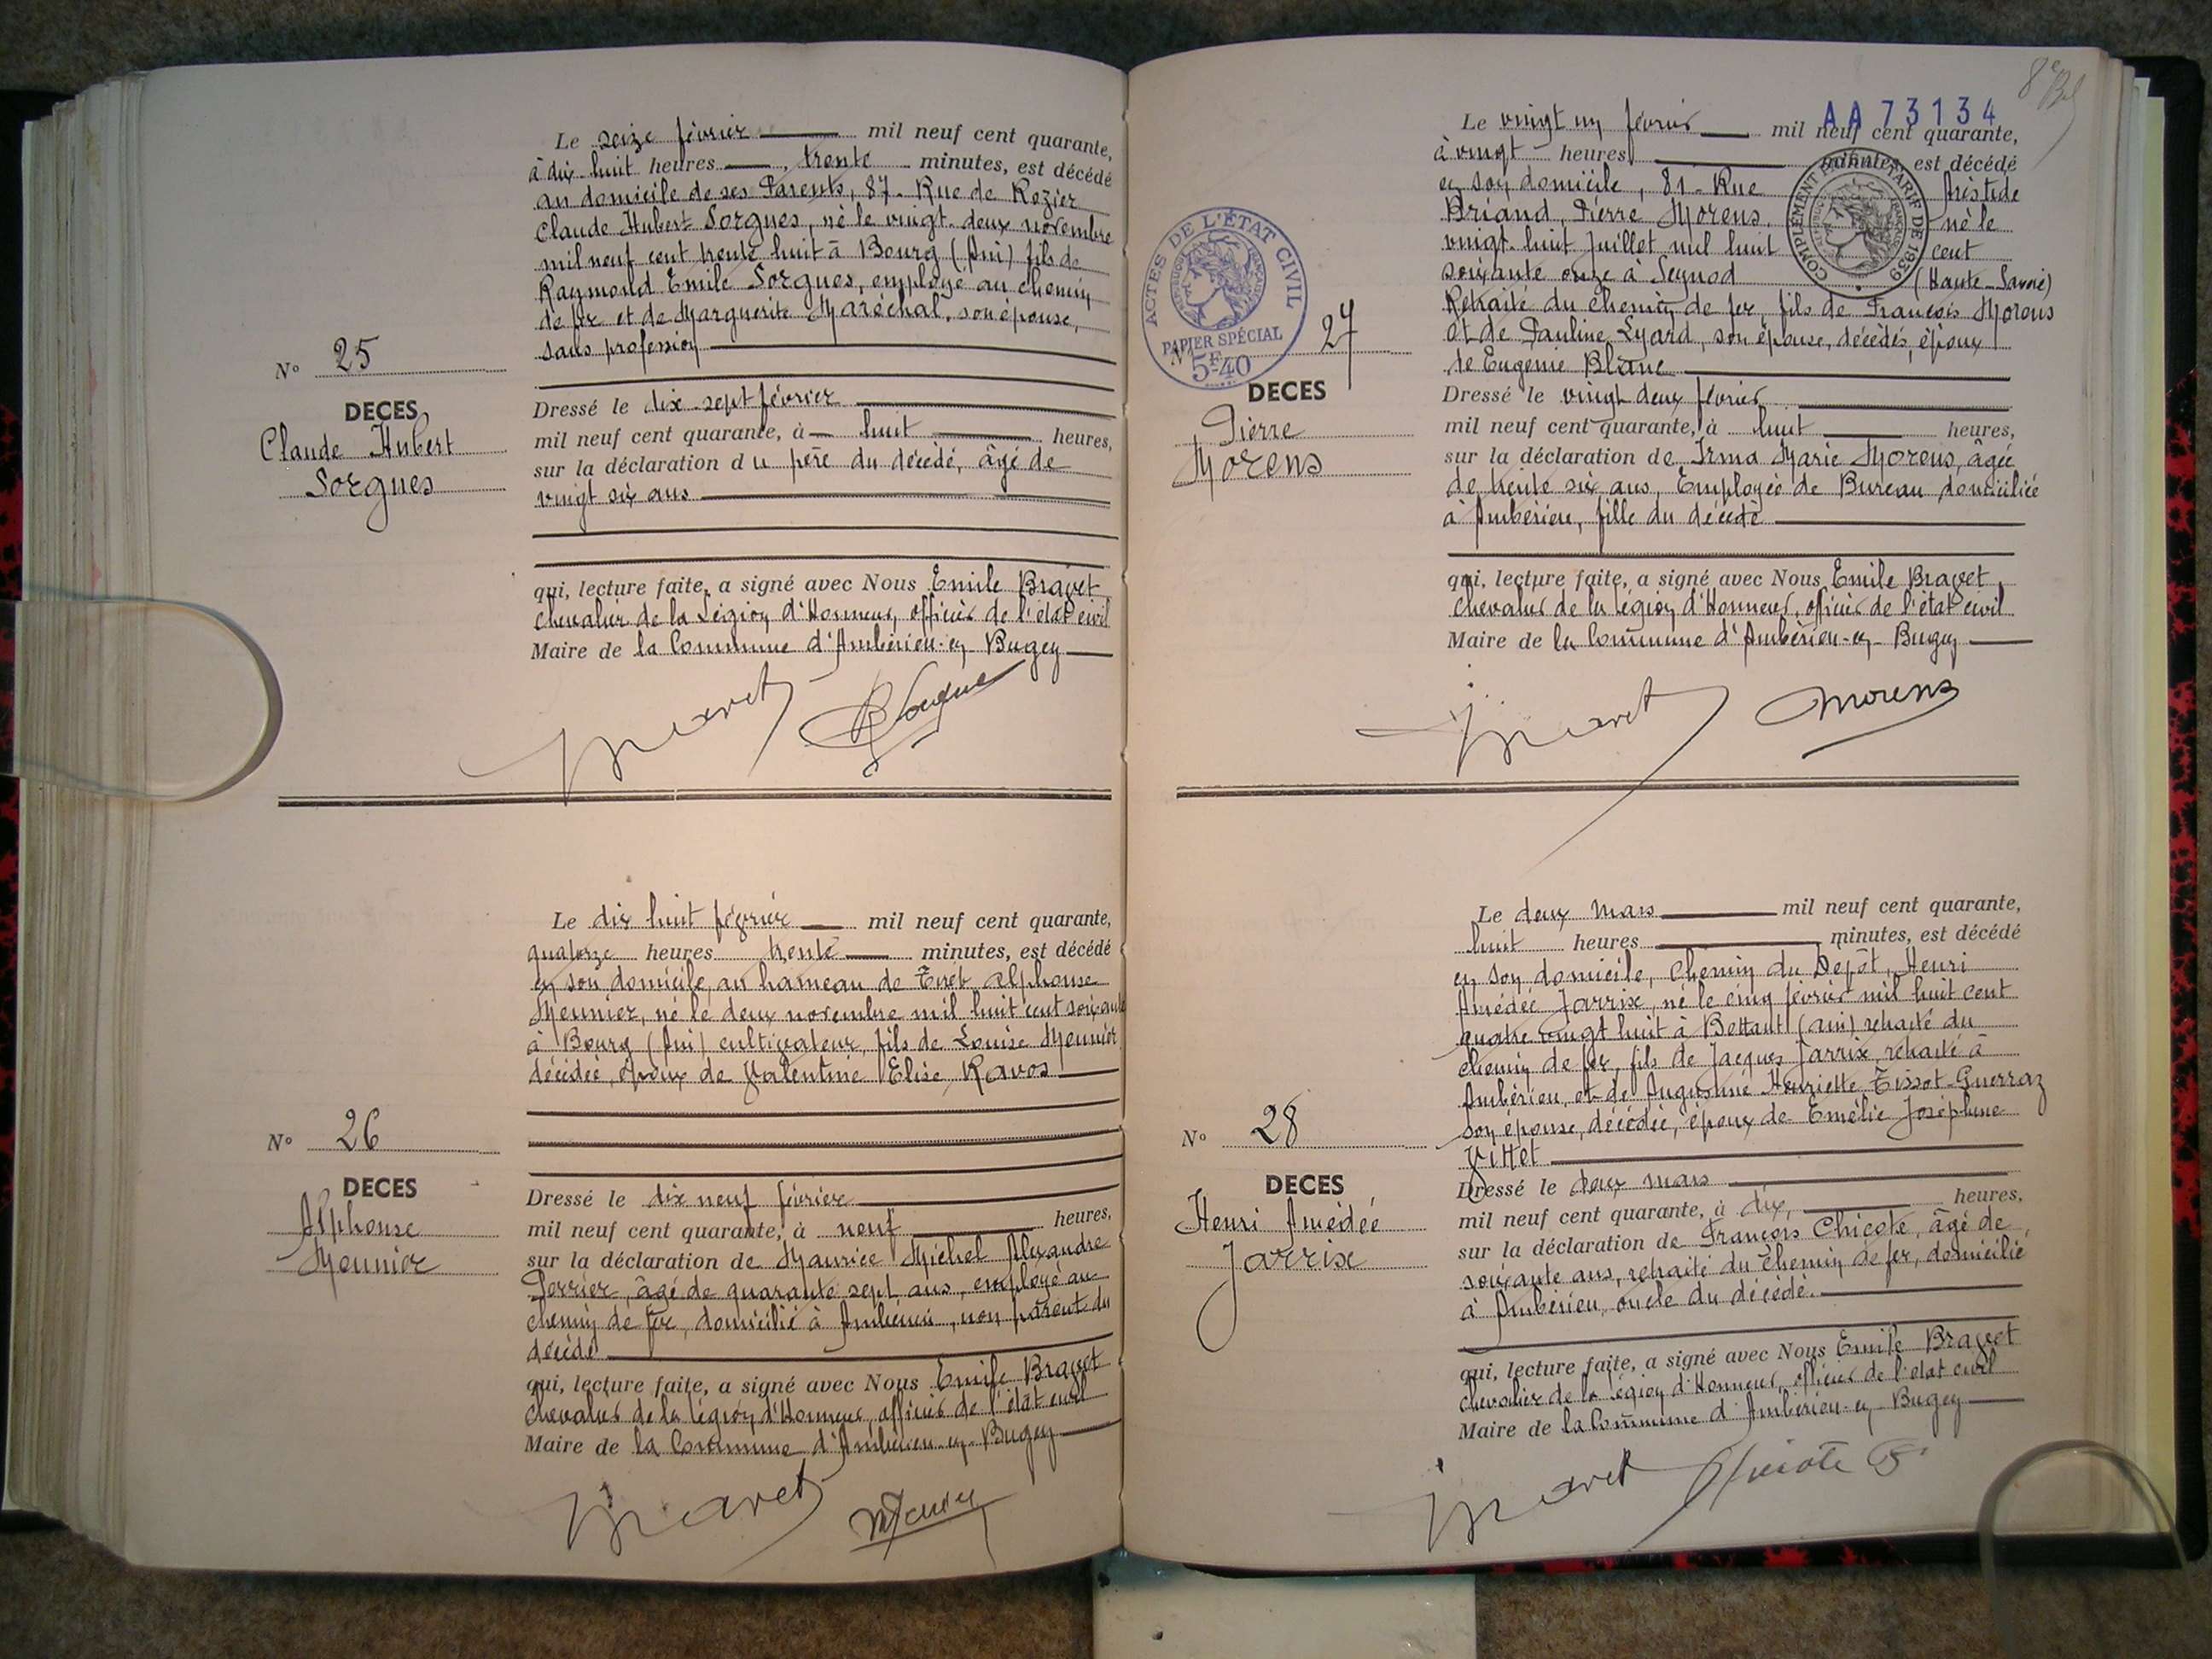 Le seize février mil neuf cent quarante,
à dix-huit heures, trente minutes, est décédé
au domicile de ses Parents, 87 - Rue de Rozier
Claude Hubert Sorgues, né le vingt-deux novembre
mil neuf cent trente huit à Bourg (Ain) fils de
Raymond Emile Sorgues, employé au chemin
de fer et de Marguerite Maréchal, son épouse,
sans profession
N° 25
DECES
Claude Hubert
Sorgues
Dressé le dix-sept février
mil neuf cent quarante, à huit heures,
sur la déclaration du père du décédé, âgé de
vingt six ans
qui, lecture faite, a signé avec Nous Emile Bravet
chevalier de la Légion d'Honneur, officier de l'état civil
Maire de la Commune d'Ambérieu-en-Bugey
Le dix huit février mil neuf cent quarante,
quatorze heures trente minutes, est décédé
en son domicile, au hameau de Tiret Alphonse
Meunier, né le deux novembre mil huit cent soixante
à Bourg (Ain) cultivateur, fils de Louise Meunier
décédée, époux de Valentine Elise Ravos
N° 26
DECES
Alphonse
Meunier
Dressé le dix neuf février
mil neuf cent quarante, à neuf heures,
sur la déclaration de Maurice Michel Alexandre
Perrier, âgé de quarante sept ans, employé au
chemin de fer, domicilié à Ambérieu, non parent du
décédé
qui, lecture faite, a signé avec Nous Emile Bravet
chevalier de la légion d'Honneur, officier de l'état civil
Maire de la Commune d'Ambérieu-en-Bugey
AA 73134
Le vingt un février mil neuf cent quarante,
à vingt heures minutes, est décédé
en son domicile, 81 - Rue Aristide
Briand, Pierre Morens, né le
vingt-huit Juillet mil huit cent
soixante onze à Seynod (Haute-Savoie)
Retraité du chemin de fer, fils de François Morens
et de Pauline Lyard, son épouse, décédés, époux
de Eugenie Blanc
COMPLÉMENT DE TARIF DE 1939
ACTES DE L'ÉTAT CIVIL
PAPIER SPÉCIAL
5F40
N° 27
DECES
Pierre
Morens
Dressé le vingt deux février
mil neuf cent quarante, à huit heures,
sur la déclaration de Irma Marie Morens, âgée
de trente six ans, Employée de Bureau domiciliée
à Ambérieu, fille du décédé
qui, lecture faite, a signé avec Nous Emile Bravet
chevalier de la légion d'Honneur, officier de l'état civil
Maire de la Commune d'Ambérieu-en-Bugey
Morens
Le deux mars mil neuf cent quarante,
huit heures minutes, est décédé
en son domicile, Chemin du Depôt, Henri
Amédée Jarrix, né le cinq février mil huit cent
quatre vingt huit à Bettant (ain) retraité du
chemin de fer, fils de Jacques Jarrix, retraité à
Ambérieu, et de Augustine Henriette Tissot-Guerraz
son épouse, décédée, époux de Emélie Joséphine
Vittet
N° 28
DECES
Henri Amédée
Jarrix
Dressé le deux mars
mil neuf cent quarante, à dix, heures,
sur la déclaration de François Chicote, âgé de
soixante ans, retraité du chemin de fer, domicilié
à Ambérieu, oncle du décédé.
qui, lecture faite, a signé avec Nous Emile Bravet
chevalier de la légion d'Honneur, officier de l'état civil
Maire de la Commune d'Ambérieu-en-Bugey